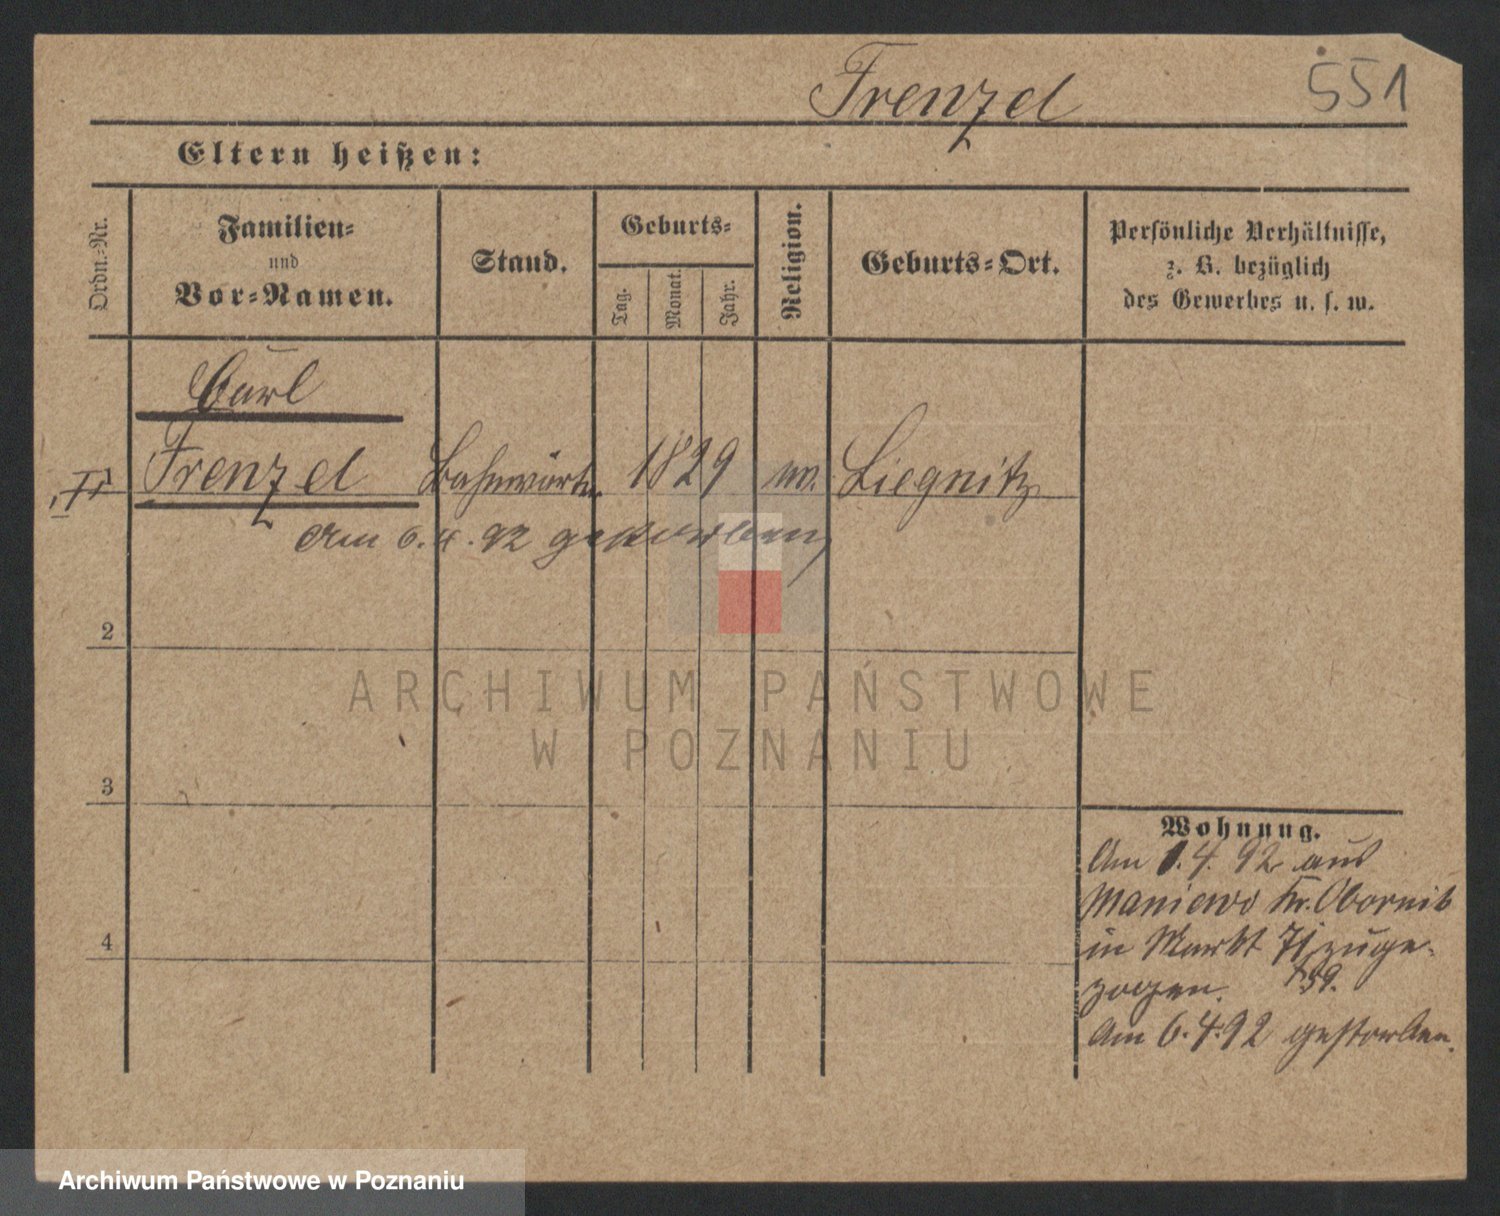 Frenzel
551
Eltern heißen:
Ordn.-Nr.
Familien-
und
Vor-Namen.
Stand.
Geburts-
Tag.
Monat.
Jahr.
Religion.
Geburts-Ort.
Persönliche Verhältnisse,
z. B. bezüglich
des Gewerbes u. s. w.
Carl
Frenzel Bahnwärter 1829 Liegnitz
Am 6.4.92 gestorben
2
3
4
Wohnung.
Am 1.4.92 aus
Maniewo Kr. Obornik
in Markt 71 zuge-
zogen. 59.
Am 6.4.92 gestorben.
ARCHIWUM PAŃSTWOWE
W POZNANIU
Archiwum Państwowe w Poznaniu